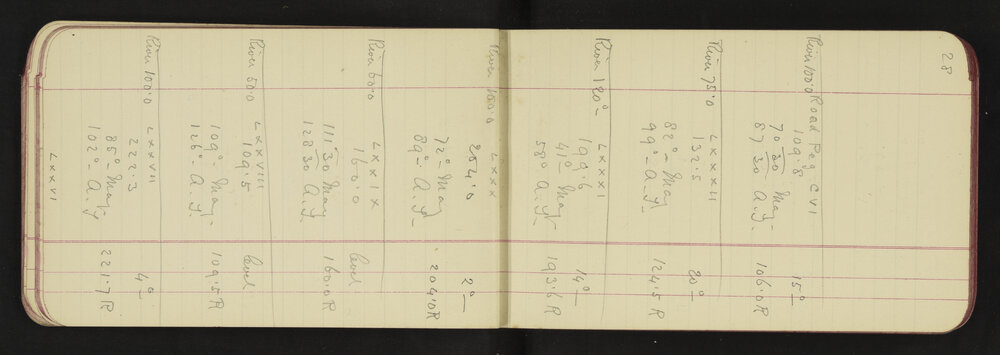 28
River 100·0 Road Peg CVI
109·8 15°
70°30 Mag
87 30 A.Y. 106·0 R
River 75·0 LXXXII
132·5 20°
82° Mag
99° A.Y. 124·5 R
River 120 LXXXI
199·6 14°
41° Mag
58° A.Y. 193·6 R
River 100·0 LXXX
204·0 2°
72° Mag
89° A.Y. 204·0 R
River 60·0 LXXIX
160·0 level
111 30 Mag
128 30 A.Y. 160·0 R
River 50·0 LXXVIII
109·5 level
109° Mag
126° A.Y. 109·5 R
River 100·0 LXXVII
222·3 4°
85° Mag
102° A.Y. 221·7 R
LXXVI